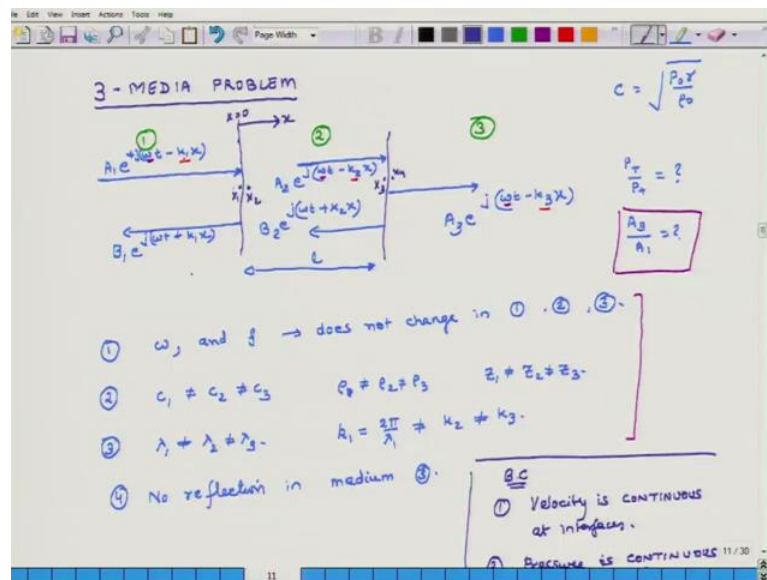 File Edit View Insert Actions Tools Help
Page Width
3 - MEDIA PROBLEM
x=0
x
C = √(P₀γ/ρ₀)
①
②
③
A₁ e^{+j(ωt - k₁x)}
A₂ e^{j(ωt - k₂x)}
A₃ e^{j(ωt - k₃x)}
x₁ x₂
x₃ x₄
B₁ e^{j(ωt + k₁x)}
B₂ e^{j(ωt + k₂x)}
l
A₃/A₁ = ?
① ω, and f → does not change in ①, ②, ③.
② c₁ ≠ c₂ ≠ c₃ ρ₁ ≠ ρ₂ ≠ ρ₃ z₁ ≠ z₂ ≠ z₃.
③ λ₁ ≠ λ₂ ≠ λ₃. k₁ = 2π/λ₁ ≠ k₂ ≠ k₃.
④ No reflection in medium ③.
B.C
① Velocity is CONTINUOUS
at interfaces.
② Pressure is CONTINUOUS
11 / 30
11